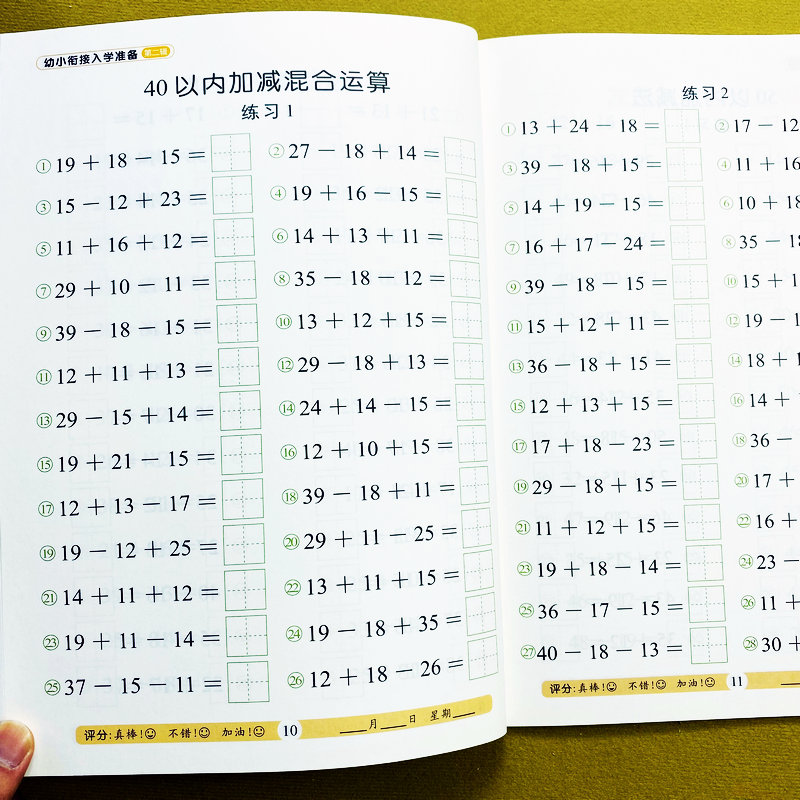 幼小衔接入学准备 第二辑
40以内加减混合运算
练习1
①19+18-15= ②27-18+14=
③15-12+23= ④19+16-15=
⑤11+16+12= ⑥14+13+11=
⑦29+10-11= ⑧35-18-12=
⑨39-18-15= ⑩13+12+15=
⑪12+11+13= ⑫29-18+13=
⑬29-15+14= ⑭24+14-15=
⑮19+21-15= ⑯12+10+15=
⑰12+13-17= ⑱39-18+11=
⑲19-12+25= ⑳29+11-25=
㉑14+11+12= ㉒13+11+15=
㉓19+11-14= ㉔19-18+35=
㉕37-15-11= ㉖12+18-26=
评分:真棒! 不错! 加油! 10 ____月____日 星期____
练习2
①13+24-18= ②17-12
③39-18+15= ④11+16
⑤14+19-15= ⑥10+18
⑦16+17-24= ⑧35-18
⑨39-18-15= ⑩15+1
⑪15+12+11= ⑫19-1
⑬36-18+15= ⑭18+1
⑮12+13+15= ⑯14+
⑰17+18-23= ⑱36-
⑲29-18+15= ⑳17+
㉑11+12+15= ㉒16+
㉓19+18-14= ㉔23-
㉕36-17-15= ㉖11+
㉗40-18-13= ㉘30+
评分:真棒! 不错! 加油! 11